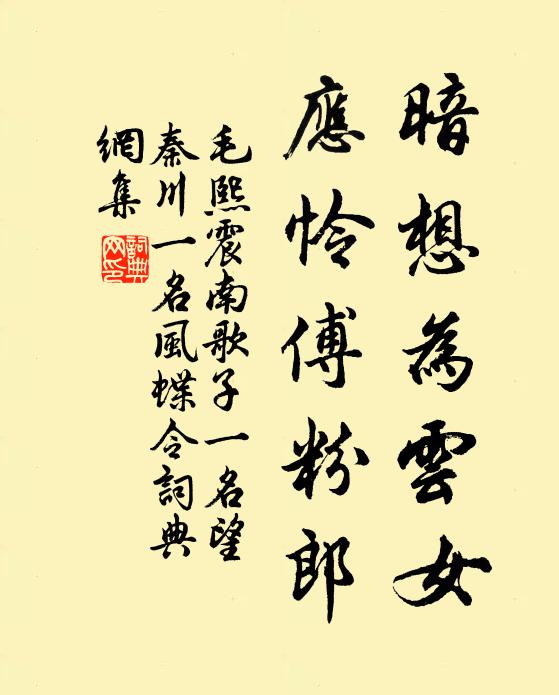 暗想為雲女
應憐傅粉郎
毛熙震南歌子一名望
秦川一名風蝶令詞典
網集
詞典
网印